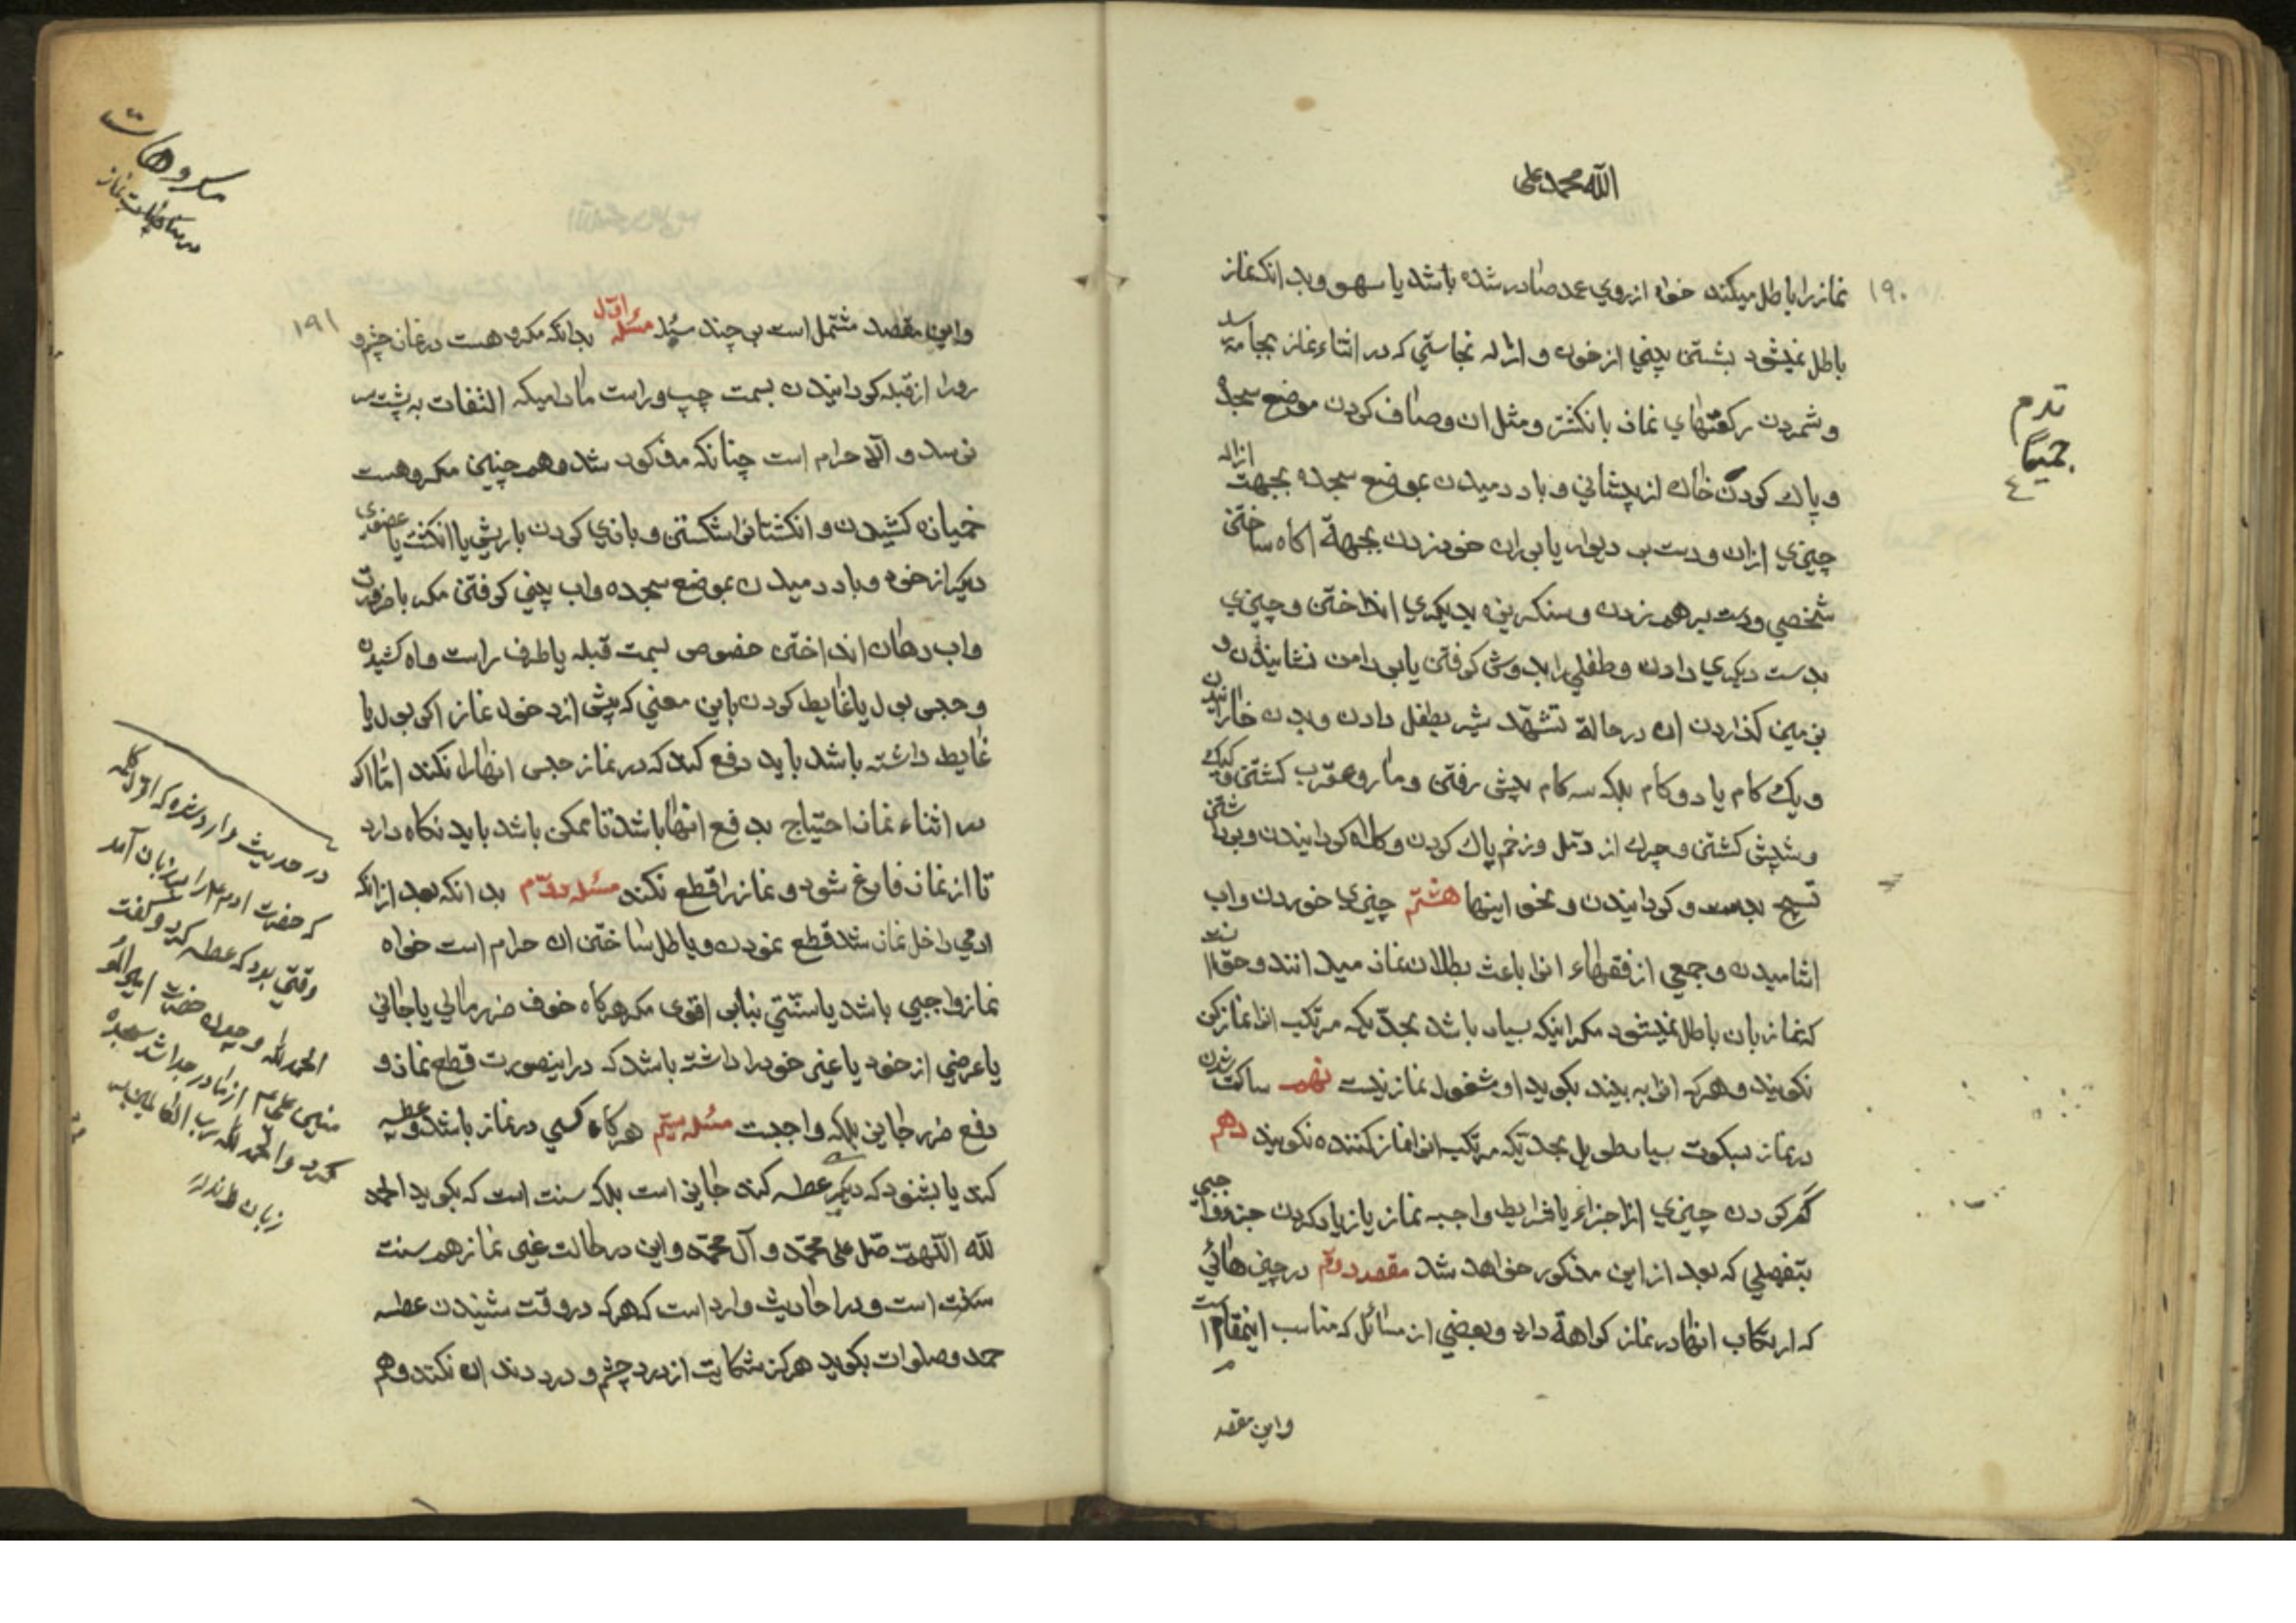 الله محمد علی
۱۹۰
نماز را باطل میکند خواه از روی عمد صادر شده باشد یا سهو و بدانکه نماز
باطل نمیشود بشستن بینی از خون و ازاله نجاستی که در اثناء نماز بجامه رسد
و شمردن رکعتهای نماز بانکشتر و مثل ان و صاف کردن موضع سجده
و پاک کردن خاک از پیشانی و باد دمیدن بموضع سجده بجهت ازاله
چیزی ازان و دست بر دیوار یا بر ران خود زدن بجهة اکاه ساختن
شخصی و دست بر هم زدن و سنکریزه بدیکری انداختن و چیزی
بدست دیکری دادن و طفلی را بدوش کرفتن یا بر دامن نشانیدن و
بزمین کذاردن ان در حالة تشهد شیر بطفل دادن و بدن خارانیدن
و یک کام یا دو کام بلکه سه کام پیش رفتن و مار و عقرب کشتن و کیک
و شپش کشتن و چرک از دمل و زخم پاک کردن و کلاه کردانیدن و برداشتن
تسبیح بدست و کردانیدن و نحو اینها هشتم چیزی خوردن و اب
اشامیدن و جمعی از فقهاء انرا باعث بطلان نماز میدانند و حق انست
که نماز بان باطل نمیشود مکر اینکه بسیار باشد بحدیکه مرتکب انرا نماز کن
نکویند و هر که انرا به بیند بکوید او مشغول نماز نیست نهم ساکت شدن
در نماز بسکوت بسیار طویل بحدیکه مرتکب انرا نماز کننده نکویند دهم
کم کردن چیزی از اجزاء یا شرایط واجبه نماز یا زیاد کردن جزو واجبی
بتفصیلی که بعد از این مذکور خواهد شد مقصد دوم در چیزهائی
که ارتکاب انها در نماز کراهة دارد و بعضی از مسائل که مناسب اینمقام است
و این مقصد
مکروهات
۱۹۱
و این مقصد مشتمل است بر چند مسئله مسئله اول بدانکه مکروهست در نماز چشم و
رو را از قبله کردانیدن بسمت چپ و راست مادامیکه التفات به پشت سر
نرسد و الا حرام است چنانکه مذکور شد و همچنین مکروهست
خمیازه کشیدن و انکشتانرا شکستن و بازی کردن با ریش یا انکشت یا عضوی
دیکر از خود و باد دمیدن بموضع سجده و اب بینی کرفتن مکر با ضرورت
و اب دهان انداختن خصوص بسمت قبله یا طرف راست و اه کشیدن
و حبس بول یا غایط کردن باین معنی که پیش از دخول نماز اکر بول یا
غایط داشته باشد باید دفع کند که در نماز حبس انها را نکند اما اکر
در اثناء نماز احتیاج بدفع انها باشد تا ممکن باشد باید نکاه دارد
تا از نماز فارغ شود و نماز را قطع نکند مسئله دوم بدانکه بعد از انکه
ادمی داخل نماز شد قطع نمودن و باطل ساختن ان حرام است خواه
نماز واجبی باشد یا سنتی بنابر اقوی مکر هرکاه خوف ضرر مالی یا جانی
یا عرضی از خود یا غیر خود را داشته باشد که در اینصورت قطع نماز و
دفع ضرر جایز بلکه واجبست مسئله سیم هرکاه کسی در نماز باشد و عطسه
کند یا بشنود که دیکری عطسه کند جایز است بلکه سنت است که بکوید الحمد
لله اللهم صل علی محمد و آل محمد و این در حالت غیر نماز هم سنت
سنت است و در احادیث وارد است که هر که در وقت شنیدن عطسه
حمد و صلوات بکوید هرکز شکایت از درد چشم و درد دندان نکند و هم
در حدیث وارد شده که اول کلمه
که حضرت ادم را بر زبان آمد
وقتی بود که عطسه کرد و گفت
الحمد لله و چون حضرت امیرالمؤ
منین علی از مادر جدا شد سجده
کرد و الحمد لله رب العالمین بر
زبان